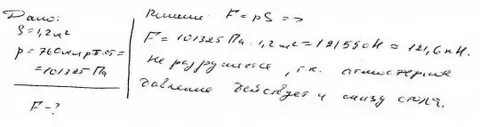 Дано:
S=1,2м²
p=760мм рт.ст=
=101325 Па
F-?
Решение: F=pS =>
F=101325 Па · 1,2м²=121590Н ≈ 121,6 кН.
Не разрушается, т.к. атмосферное
давление действует и снизу стола.